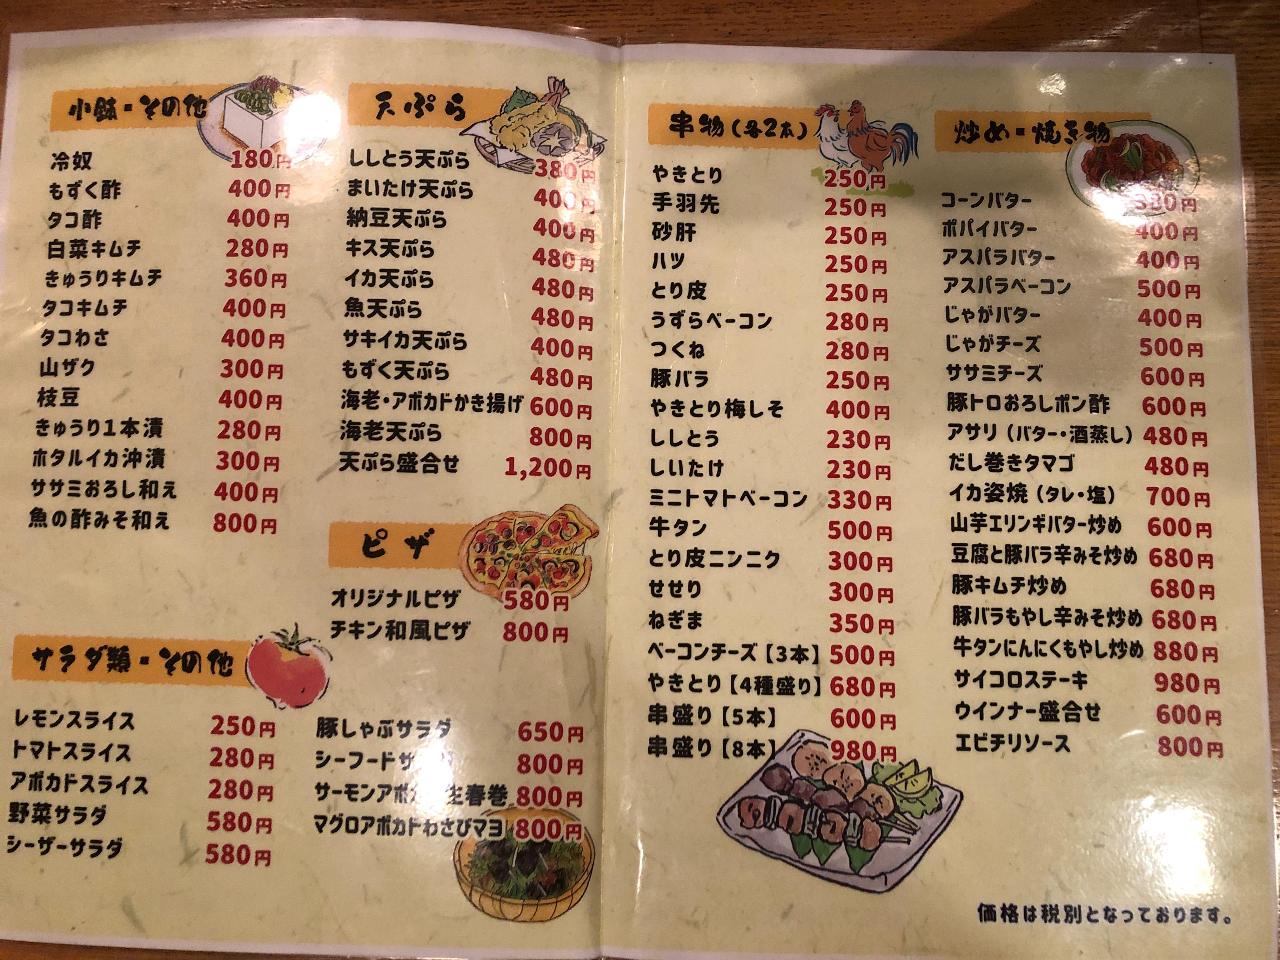 小鉢・その他
冷奴 180円
もずく酢 400円
タコ酢 400円
白菜キムチ 280円
きゅうりキムチ 360円
タコキムチ 400円
タコわさ 400円
山ザク 300円
枝豆 400円
きゅうり1本漬 280円
ホタルイカ沖漬 300円
ササミおろし和え 400円
魚の酢みそ和え 800円
天ぷら
ししとう天ぷら 380円
まいたけ天ぷら 400円
納豆天ぷら 400円
キス天ぷら 480円
イカ天ぷら 480円
魚天ぷら 480円
サキイカ天ぷら 400円
もずく天ぷら 480円
海老・アボカドかき揚げ 600円
海老天ぷら 800円
天ぷら盛合せ 1,200円
ピザ
オリジナルピザ 580円
チキン和風ピザ 800円
サラダ類・その他
レモンスライス 250円
トマトスライス 280円
アボカドスライス 280円
野菜サラダ 580円
シーザーサラダ 580円
豚しゃぶサラダ 650円
シーフードサ 800円
サーモンアボカ 生春巻 800円
マグロアボカドわさびマヨ 800円
串物(各2本)
やきとり 250円
手羽先 250円
砂肝 250円
ハツ 250円
とり皮 250円
うずらベーコン 280円
つくね 280円
豚バラ 250円
やきとり梅しそ 400円
ししとう 230円
しいたけ 230円
ミニトマトベーコン 330円
牛タン 500円
とり皮ニンニク 300円
せせり 300円
ねぎま 350円
ベーコンチーズ【3本】 500円
やきとり【4種盛り】 680円
串盛り【5本】 600円
串盛り【8本】 980円
炒め・焼き物
コーンバター 380円
ポパイバター 400円
アスパラバター 400円
アスパラベーコン 500円
じゃがバター 400円
じゃがチーズ 500円
ササミチーズ 600円
豚トロおろしポン酢 600円
アサリ(バター・酒蒸し) 480円
だし巻きタマゴ 480円
イカ姿焼(タレ・塩) 700円
山芋エリンギバター炒め 600円
豆腐と豚バラ辛みそ炒め 680円
豚キムチ炒め 680円
豚バラもやし辛みそ炒め 680円
牛タンにんにくもやし炒め 880円
サイコロステーキ 980円
ウインナー盛合せ 600円
エビチリソース 800円
価格は税別となっております。